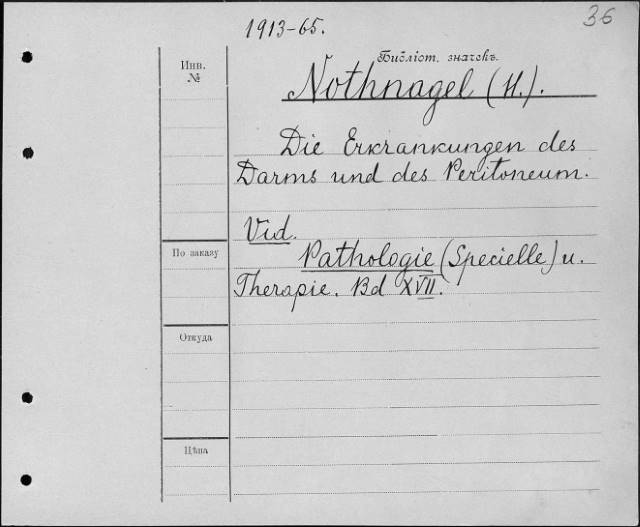 36
1913-65.
Инв.
№
Библіот. значекъ.
Nothnagel (H.).
Die Erkrankungen des
Darms und des Peritoneum.
Vid.
По заказу
Pathologie (Specielle) u.
Therapie. Bd XVII.
Откуда
Цѣна